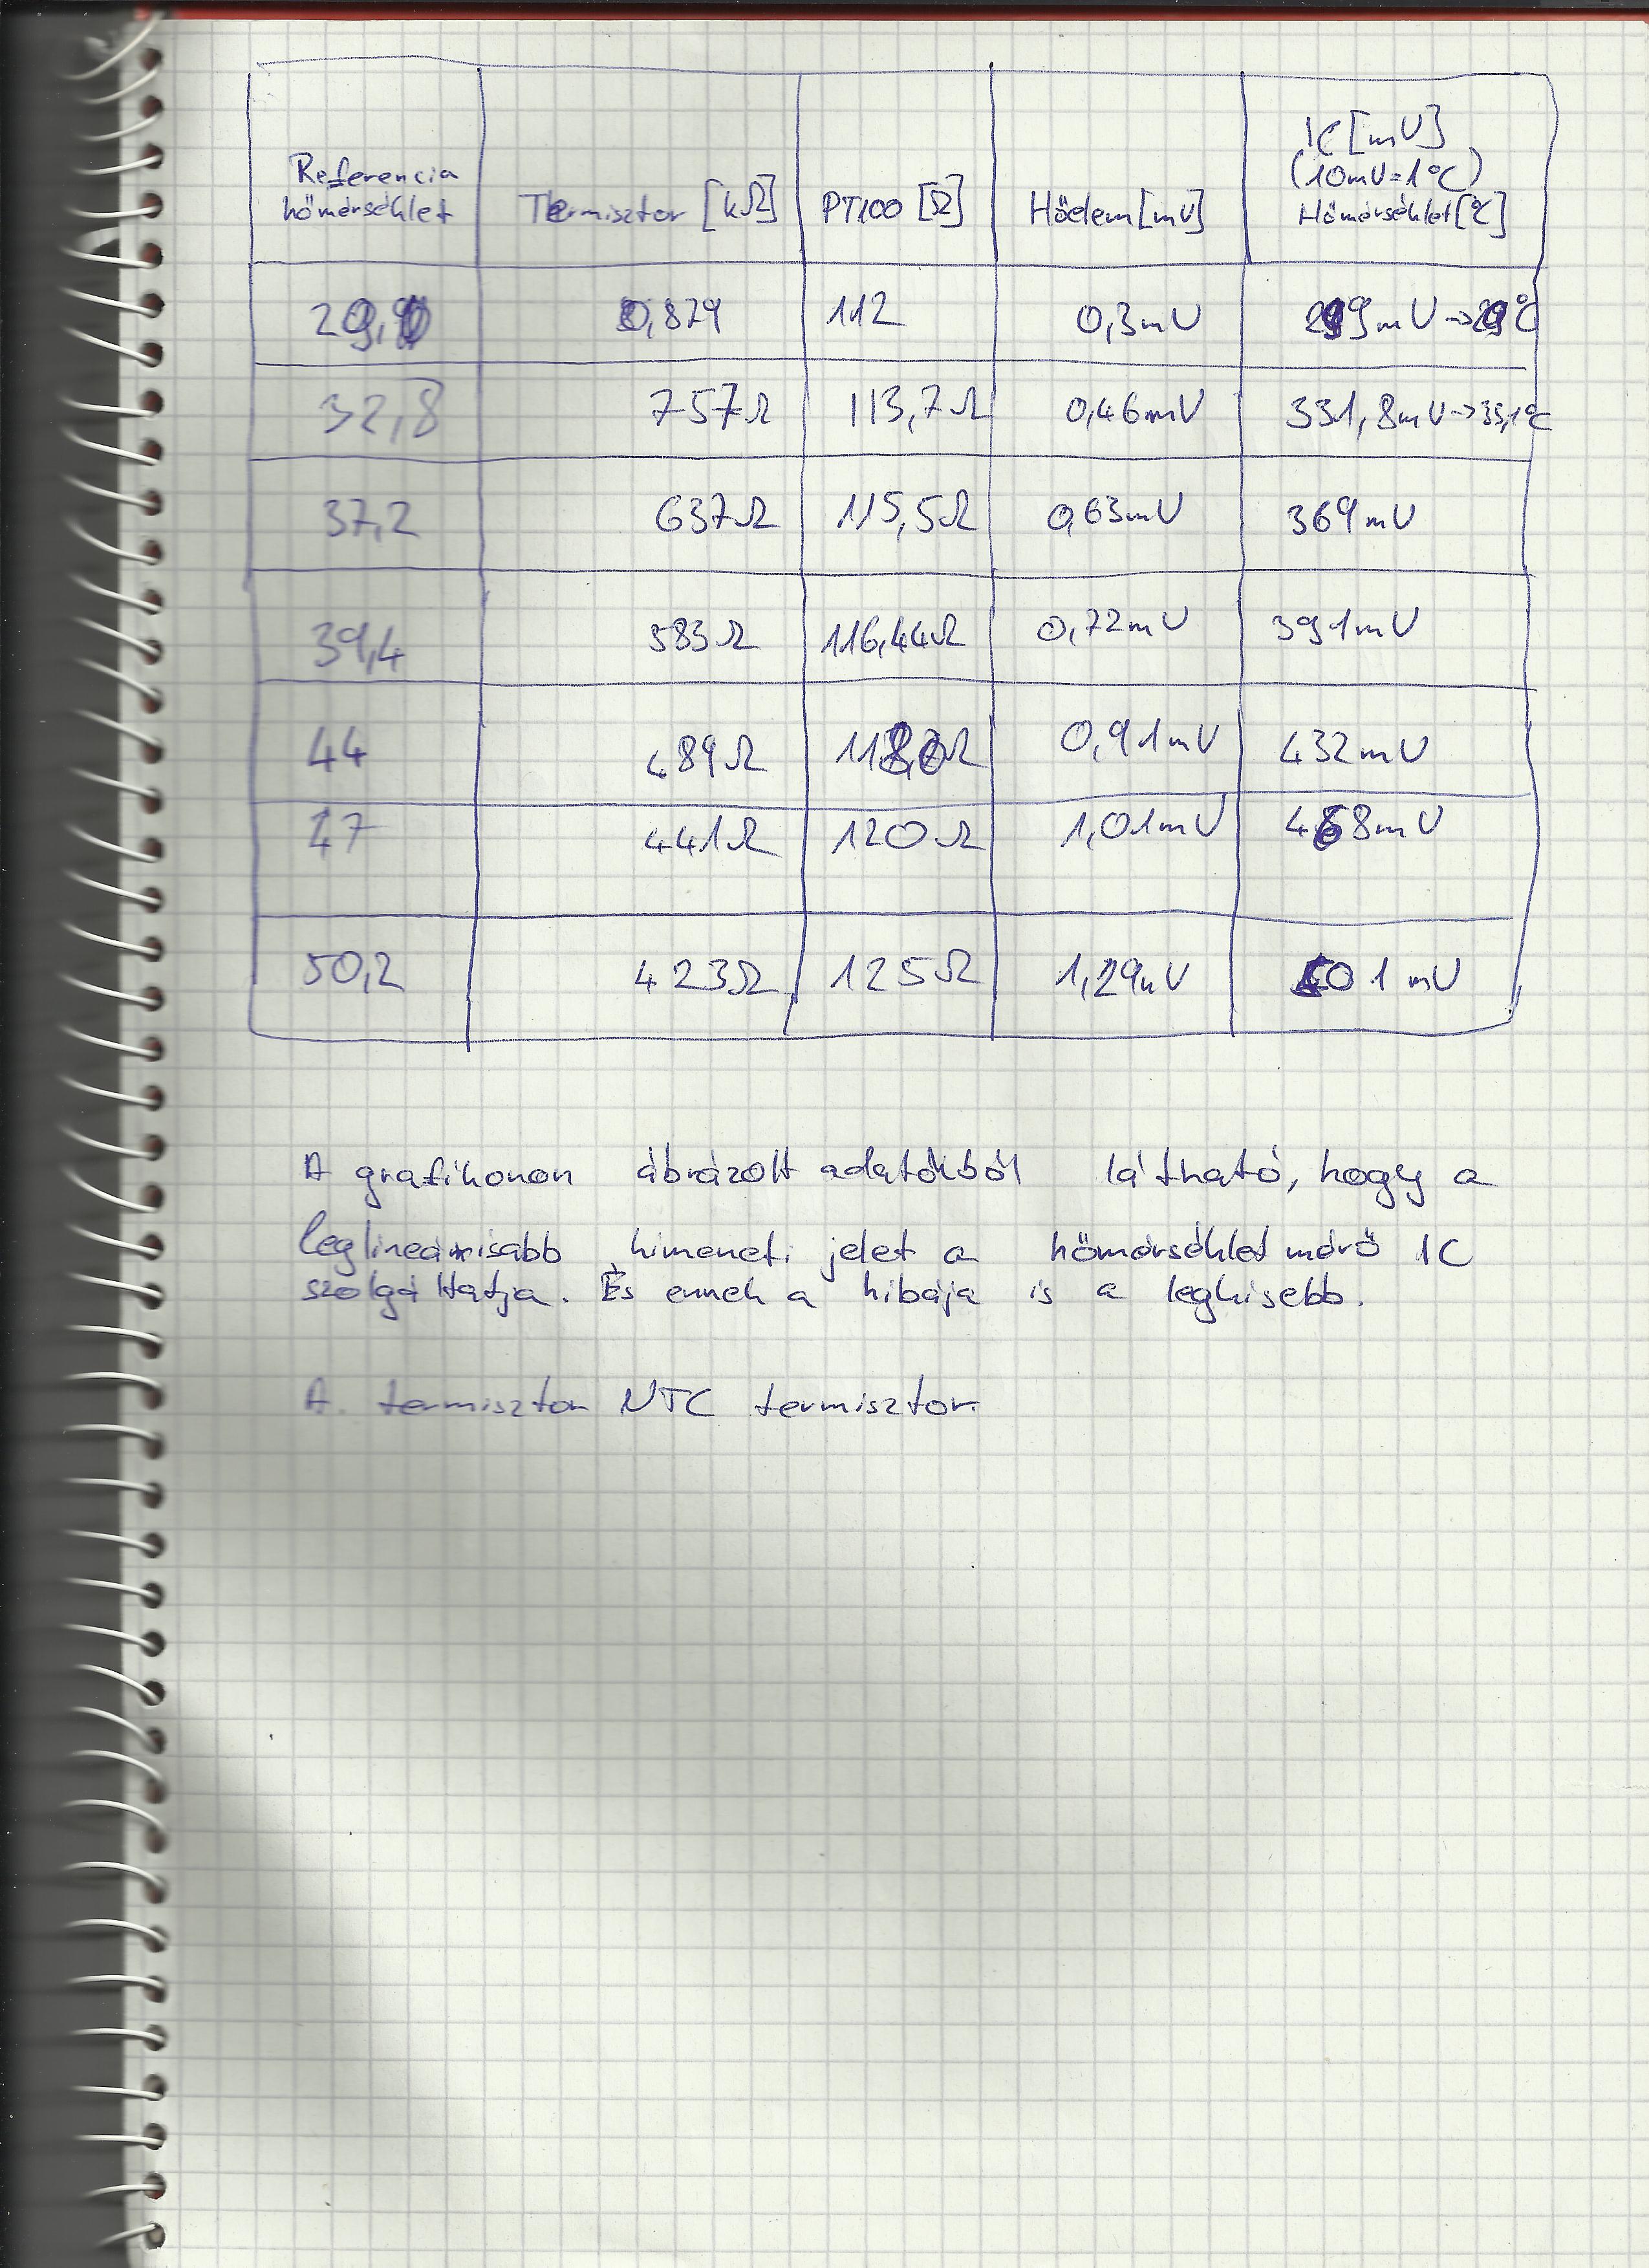 Referencia hőmérséklet Termisztor [kΩ] PT100 [Ω] Hőelem [mV] IC [mV] (10mV=1°C) Hőmérséklet [°C]
0,879 112 0,3mV
32,8 757Ω 113,7Ω 0,46mV 331,8mV->33,1°C
37,2 637Ω 115,5Ω 0,63mV 369mV
39,4 583Ω 116,44Ω 0,72mV 391mV
44 489Ω 0,91mV 432mV
47 441Ω 120Ω 1,01mV 468mV
50,2 423Ω 125Ω 1,29mV 501 mV
A grafikonon ábrázolt adatokból látható, hogy a
leglineárisabb kimeneti jelet a hőmérséklet mérő IC
szolgáltatja. És ennek a hibája is a legkisebb.
A termisztor NTC termisztor.